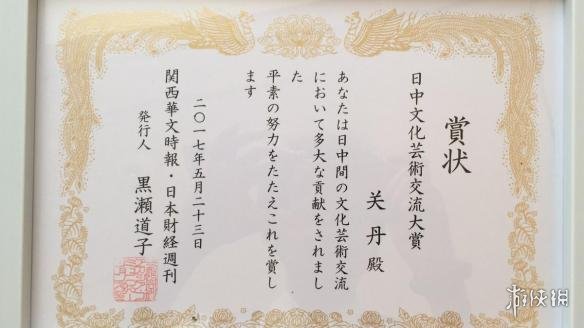 賞状
日中文化芸術交流大賞
关丹 殿
あなたは日中間の文化芸術交流
において多大な貢献をされまし
た
平素の努力をたたえこれを賞し
ます
二〇一七年五月二十三日
関西華文時報・日本財経週刊
発行人 黒瀬道子
游侠网